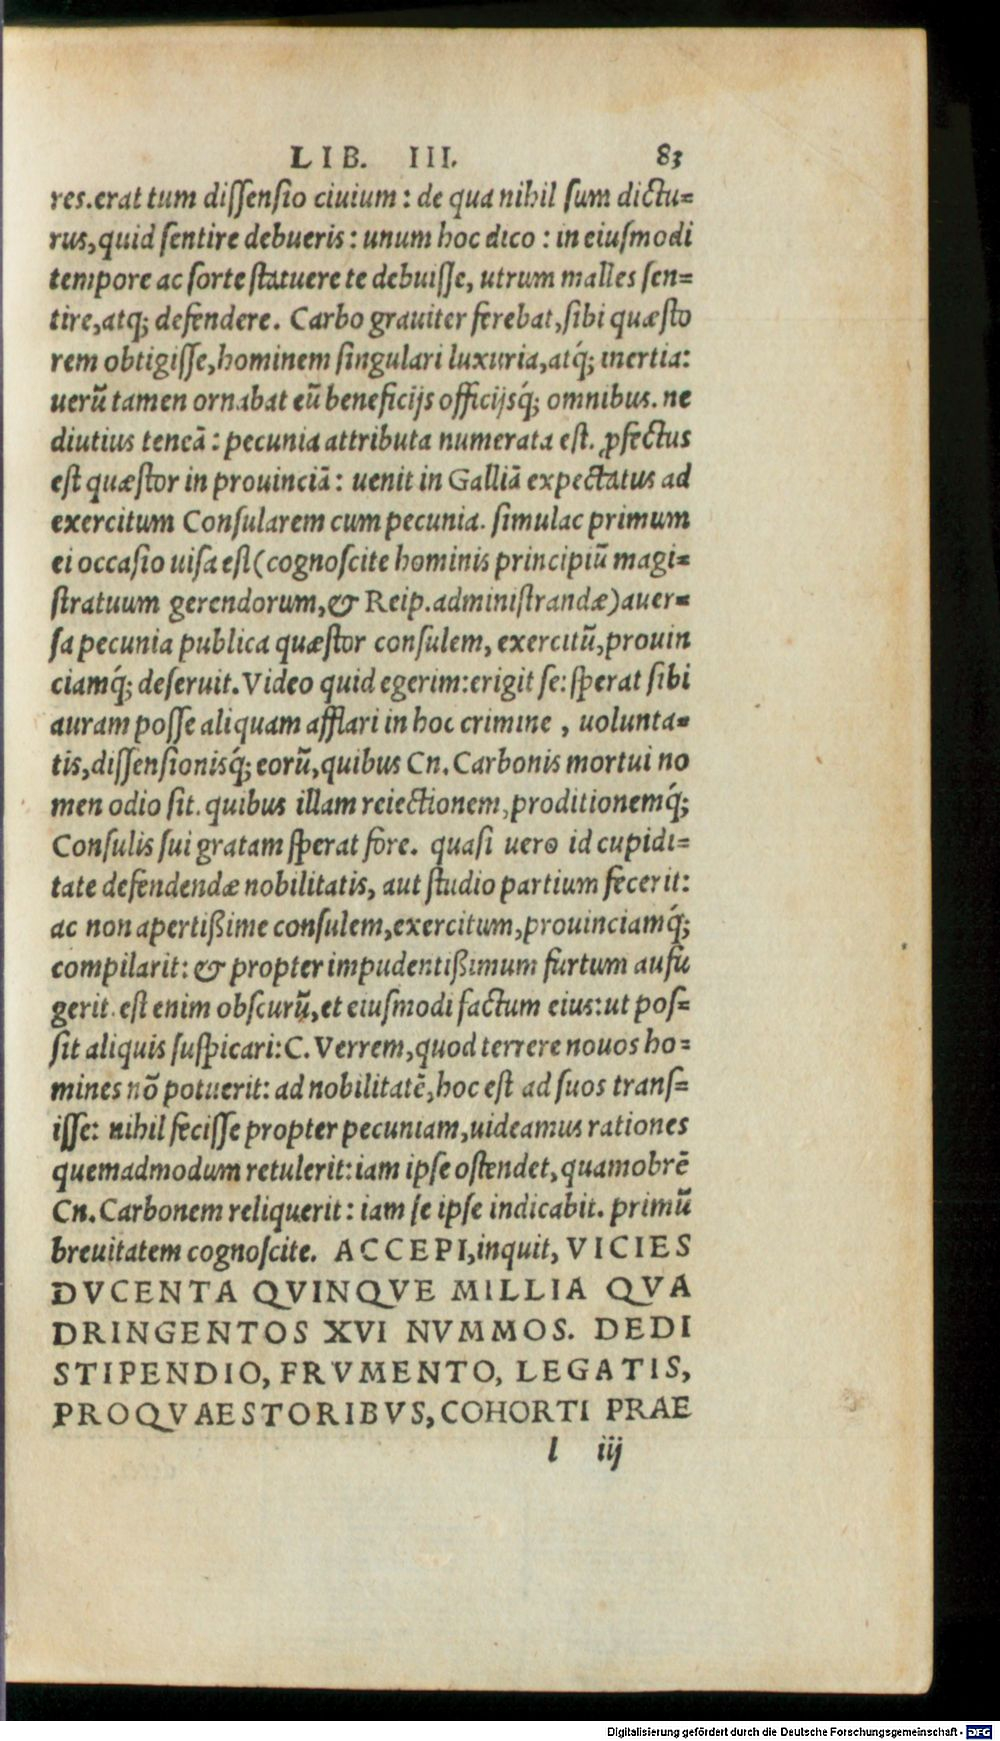 LIB. III. 83
res.erat tum dissensio ciuium : de qua nihil sum dictu=
rus,quid sentire debueris : unum hoc dico : in eiusmodi
tempore ac sorte statuere te debuisse, utrum malles sen=
tire,atq; defendere. Carbo grauiter ferebat,sibi quæsto
rem obtigisse,hominem singulari luxuria,atq́; inertia:
uerũ tamen ornabat eũ beneficijs officijsq́; omnibus. ne
diutius teneã : pecunia attributa numerata est. ꝓfectus
est quæstor in prouinciã : uenit in Galliã expectatus ad
exercitum Consularem cum pecunia. simulac primum
ei occasio uisa est(cognoscite hominis principiũ magi=
stratuum gerendorum,& Reip.administrandæ)auer=
sa pecunia publica quæstor consulem, exercitũ,prouin
ciamq́; deseruit.Video quid egerim:erigit se:sperat sibi
auram posse aliquam afflari in hoc crimine , uolunta=
tis,dissensionisq́; eorũ,quibus Cn.Carbonis mortui no
men odio sit. quibus illam reiectionem,proditionemq́;
Consulis sui gratam sperat fore. quasi uero id cupidi=
tate defendendæ nobilitatis, aut studio partium fecerit:
ac non apertißime consulem,exercitum,prouinciamq́;
compilarit: & propter impudentißimum furtum aufu
gerit. est enim obscurũ,et eiusmodi factum eius:ut pos=
sit aliquis suspicari:C. Verrem,quod terrere nouos ho=
mines nõ potuerit: ad nobilitatẽ,hoc est ad suos trans=
isse: nihil fecisse propter pecuniam,uideamus rationes
quemadmodum retulerit:iam ipse ostendet,quamobrẽ
Cn.Carbonem reliquerit : iam se ipse indicabit. primũ
breuitatem cognoscite. ACCEPI,inquit, VICIES
DVCENTA QVINQVE MILLIA QVA
DRINGENTOS XVI NVMMOS. DEDI
STIPENDIO, FRVMENTO, LEGATIS,
PROQVAESTORIBVS, COHORTI PRAE
l iij
Digitalisierung gefördert durch die Deutsche Forschungsgemeinschaft - DFG